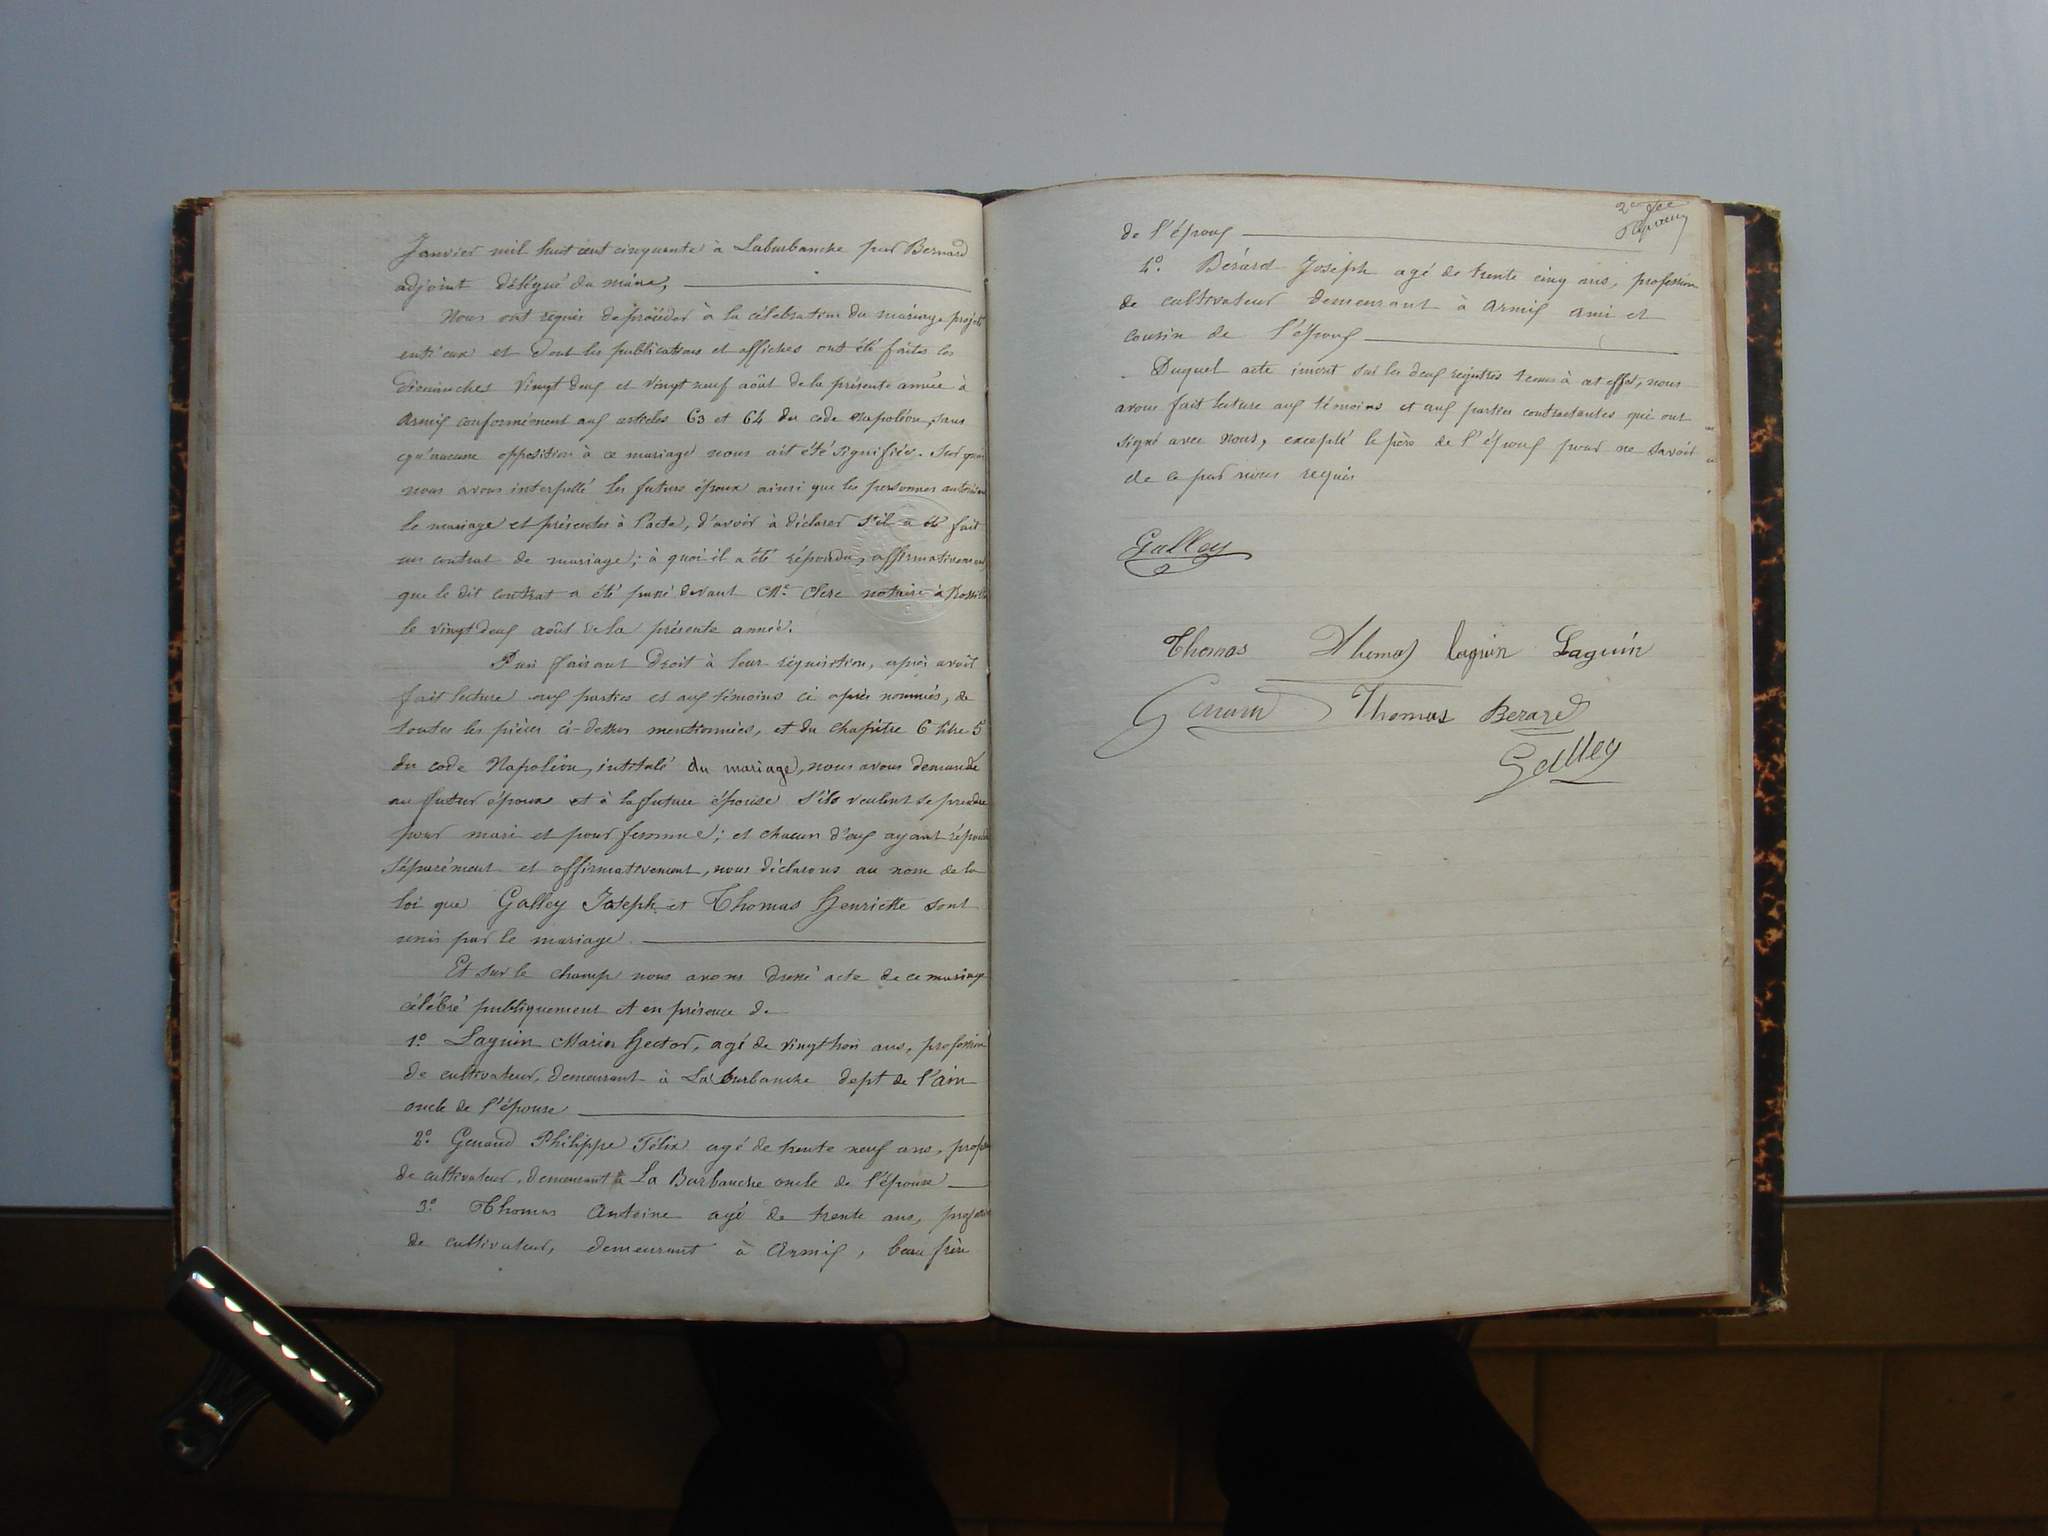 Janvier mil huit cent cinquante à Laburbanche par Bernard
adjoint délégué du maire,
Nous ont requis de procéder à la célébration du mariage projeté
entr'eux et dont les publications et affiches ont été faites les
Dimanches vingt deux et vingt neuf août de la présente année à
Armix conformément aux articles 63 et 64 du code Napoléon, sans
qu'aucune opposition à ce mariage nous ait été signifiée. Sur quoi
nous avons interpellé les futurs époux ainsi que les personnes autorisant
le mariage et présentes à l'acte, d'avoir à déclarer s'il a été fait
un contrat de mariage; à quoi il a été répondu, affirmativement
que le dit contrat a été passé devant Me Clerc notaire à
le vingt deux août de la présente année.
Puis faisant Droit à leur réquisition, après avoir
fait lecture aux parties et aux témoins ci après nommés, de
toutes les pièces ci-dessus mentionnées, et du chapitre 6 titre 5
du code Napoléon, intitulé du mariage, nous avons demandé
au futur époux et à la future épouse s'ils veulent se prendre
pour mari et pour femme; et chacun d'eux ayant répondu
séparément et affirmativement, nous déclarons au nom de la
loi que Galley Joseph et Thomas Henriette sont
unis par le mariage.
Et sur le champ nous avons dressé acte de ce mariage
célébré publiquement et en présence de
1º. Laguin Marin Hector, agé de vingt trois ans, profession
de cultivateur, demeurant à La burbanche dept de l'ain
oncle de l'épouse
2º. Genand Philippe Félix agé de trente neuf ans, profession
de cultivateur, demeurant à La Burbanche oncle de l'épouse
3º. Thomas Antoine agé de trente ans, profession
de cultivateur, demeurant à Armix, beau frère
de l'époux
4º. Bérard Joseph agé de trente cinq ans, profession
de cultivateur demeurant à Armix ami et
cousin de l'époux
Duquel acte inscrit sur les deux registres tenus à cet effet, nous
avons fait lecture aux témoins et aux parties contractantes qui ont
signé avec nous, excepté le père de l'époux pour ne savoir
de ce par nous requis
Galley
Thomas Thomas Laguin Laguin
Genand Thomas Berard
Galley